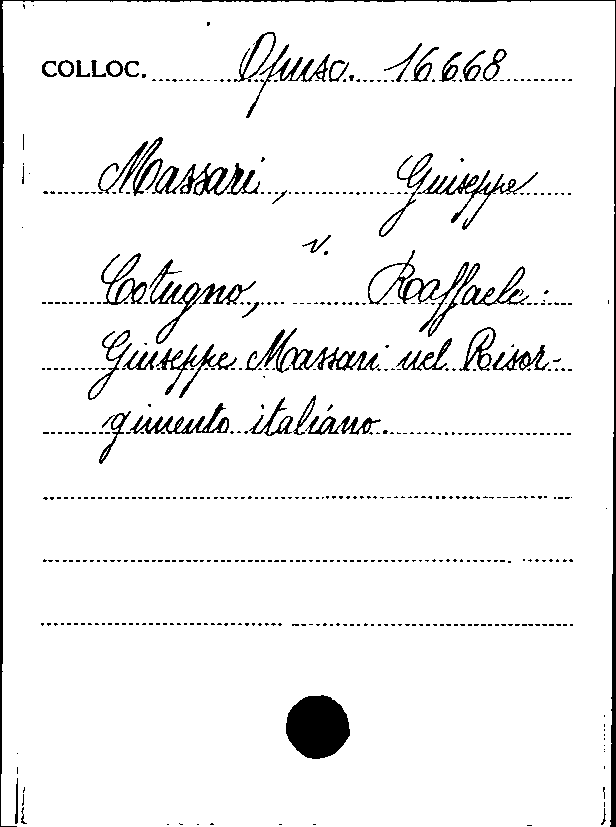 COLLOC. Opusc. 16668
Massari, Giuseppe
v.
Cotugno, Raffaele:
Giuseppe Massari nel Risor-
gimento italiano.